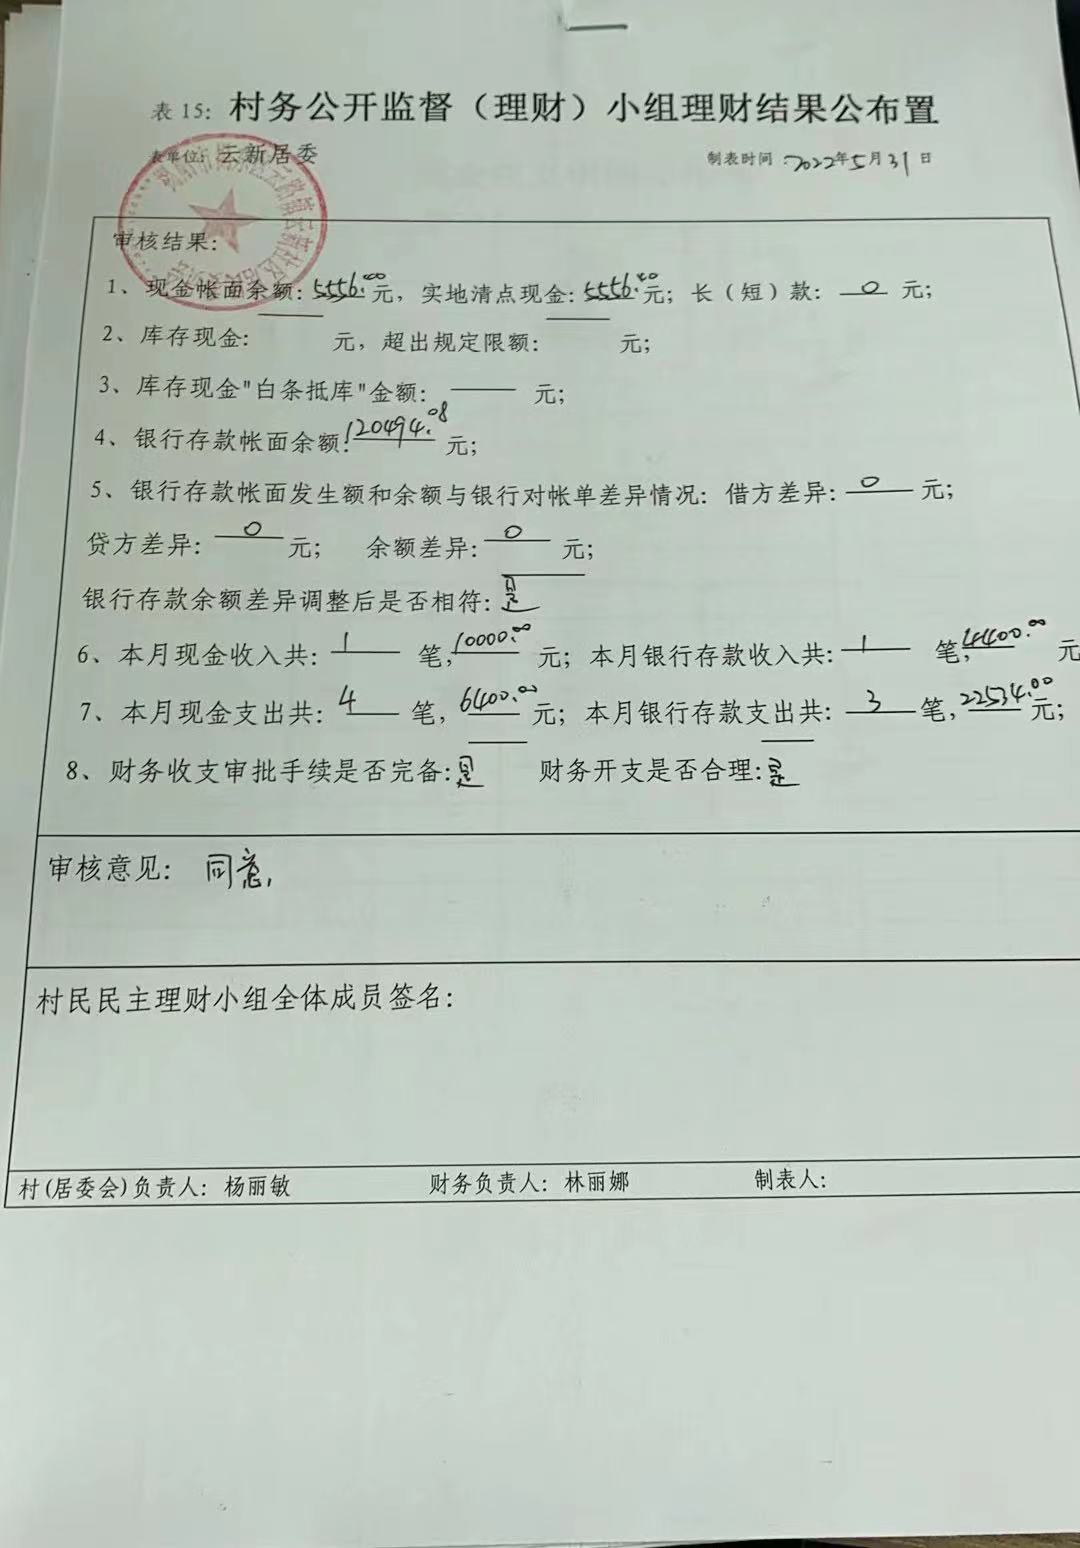 表 15: 村务公开监督（理财）小组理财结果公布置
表单位: 云新居委 制表时间: 2022年5月31日
审核结果:
1、现金帐面余额: 5556.00元，实地清点现金: 5556.00元；长（短）款: 0 元；
2、库存现金: 元，超出规定限额: 元；
3、库存现金"白条抵库"金额: 元；
4、银行存款帐面余额: 120494.08 元；
5、银行存款帐面发生额和余额与银行对帐单差异情况: 借方差异: 0 元；
贷方差异: 0 元； 余额差异: 0 元；
银行存款余额差异调整后是否相符: 是
6、本月现金收入共: 1 笔, 10000.00 元；本月银行存款收入共: 1 笔, 4400.00 元
7、本月现金支出共: 4 笔, 6400.00 元；本月银行存款支出共: 3 笔, 22534.00 元；
8、财务收支审批手续是否完备: 是 财务开支是否合理: 是
审核意见: 同意,
村民民主理财小组全体成员签名:
村(居委会)负责人: 杨丽敏 财务负责人: 林丽娜 制表人: